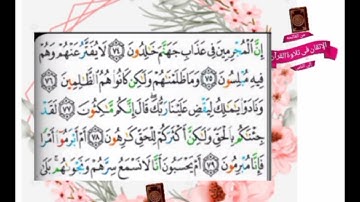 إِنَّ الْمُجْرِمِينَ فِي عَذَابِ جَهَنَّمَ خَالِدُونَ ٧٤ لَا يُفَتَّرُ عَنْهُمْ وَهُمْ
فِيهِ مُبْلِسُونَ ٧٥ وَمَا ظَلَمْنَاهُمْ وَلَكِنْ كَانُوا هُمُ الظَّالِمِينَ ٧٦
وَنَادَوْا يَا مَالِكُ لِيَقْضِ عَلَيْنَا رَبُّكَ قَالَ إِنَّكُمْ مَاكِثُونَ ٧٧ لَقَدْ
جِئْنَاكُمْ بِالْحَقِّ وَلَكِنَّ أَكْثَرَكُمْ لِلْحَقِّ كَارِهُونَ ٧٨ أَمْ أَبْرَمُوا أَمْرًا
فَإِنَّا مُبْرِمُونَ ٧٩ أَمْ يَحْسَبُونَ أَنَّا لَا نَسْمَعُ سِرَّهُمْ وَنَجْوَاهُمْ بَلَى
الإتقان في تلاوة القرآن